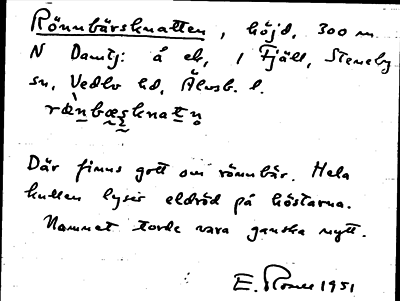 Rönnbärsknatten, höjd, 300 m
N Damtj: å ek, 1 Fjäll, Steneby
sn, Vedbo hd, Älvsb. l.
Där finns gott om rönnbär. Hela
kullen lyser eldröd på höstarna.
Namnet torde vara ganska nytt.
E. 1951